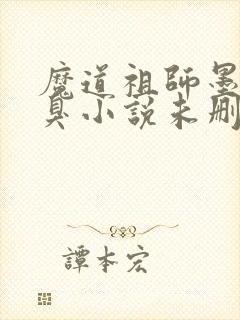 魔道祖師墨
臭小說未刪
譚本宏